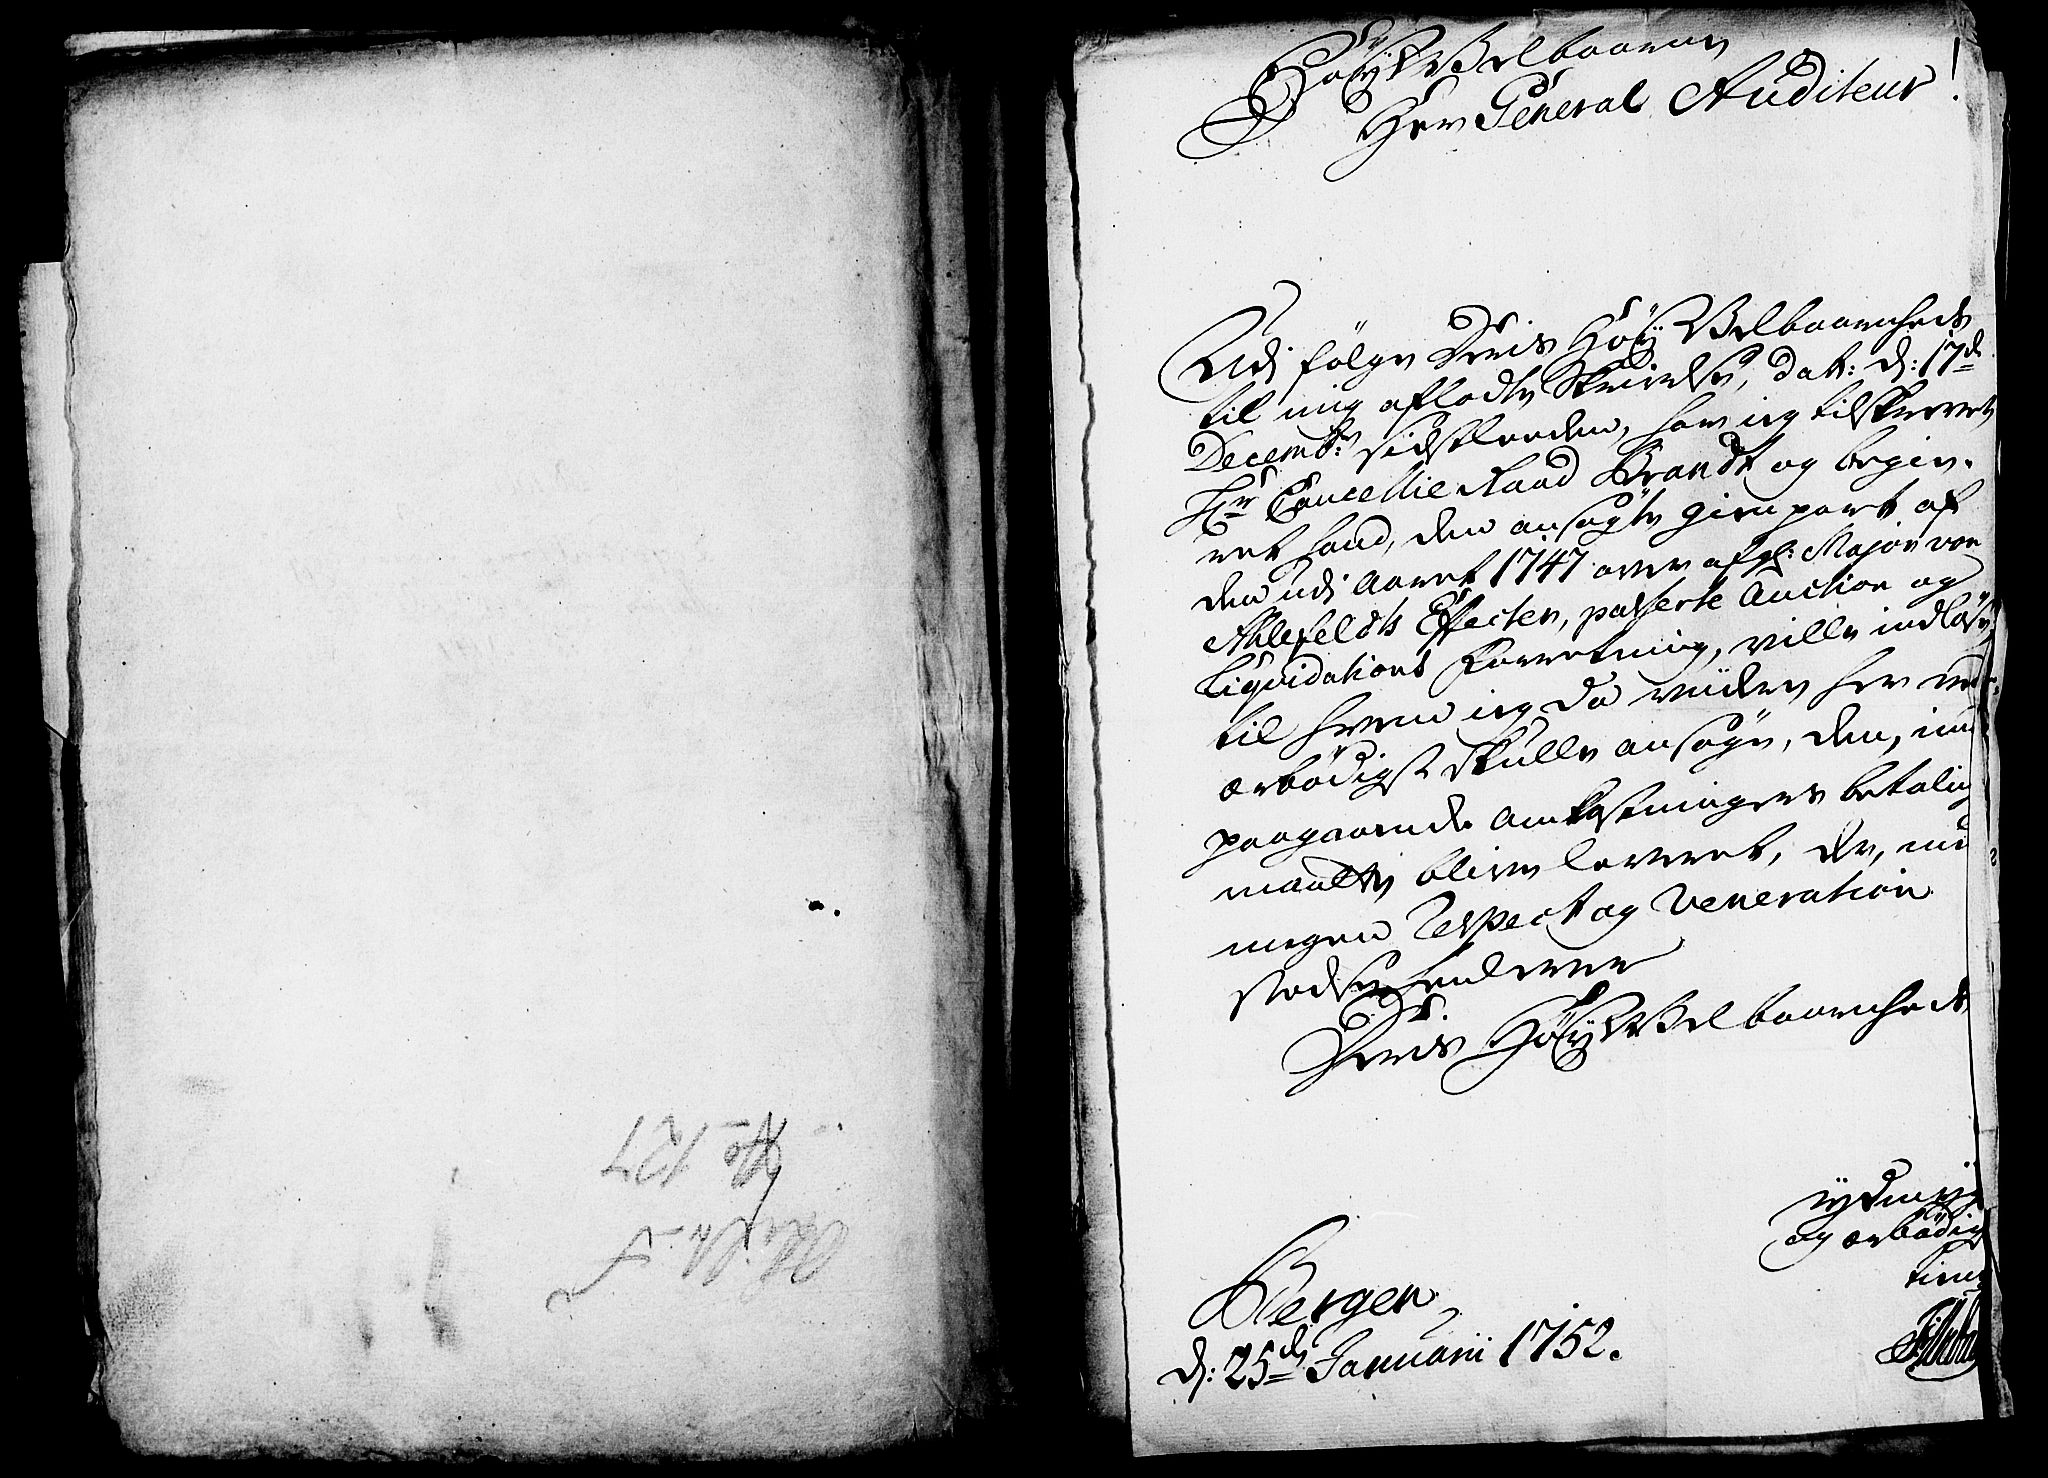 HöyWelbaarne
Herr General Auditeur!
Udi følge Deris Höy Welbaarenheds
til mig afladte Skrivelse, dat: d: 17de
Decembr: sidstleeden, har ieg tilskrevet
Hr Cancellie Raad Brandt og begie-
ret hand, den ansøgte gienpart af
den udi Aaret 1747 over afg: Major von
Ahlefeldts Effecter, passerte Auction og
Liquidations Forretning, ville indløse,
til hvem ieg da
ærbødigst skulle ansøge, den, imod
paagaaende Omkostningers betaling
maatte blive leveret, der, med
megen Respect og Veneration
stedse henlever
Deris HöyWelbaarenheds
ydmyg
og ærbødig
tiener
Bergen
d: 25de Januarii 1752.
No 127